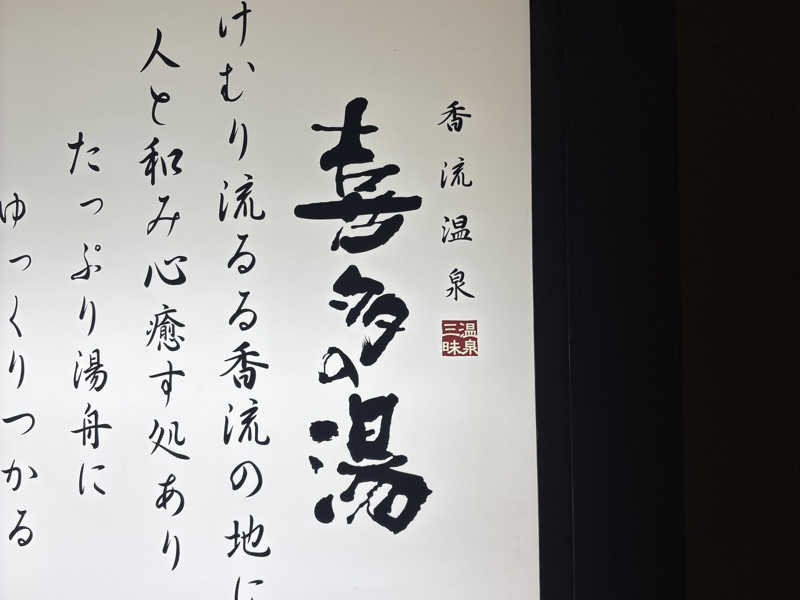 香流温泉
温泉三昧
喜多の湯
けむり流るる香流の地に
人と和み心癒す処あり
たっぷり湯舟に
ゆっくりつかる